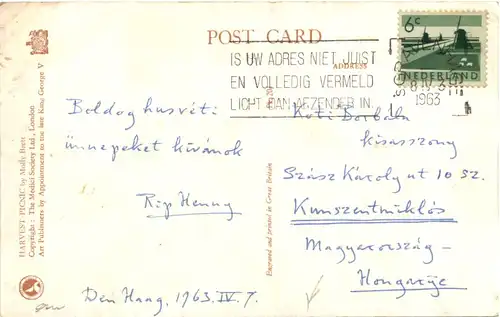 POST CARD
ADDRESS
IS UW ADRES NIET JUIST
EN VOLLEDIG VERMELD
LICHT DAN AFZENDER IN
6c
NEDERLAND
1963
Boldog husvéti
ünnepeket kívánok
Rip Henny
Den Haag, 1963. IV. 7.
Koti Borbála
kisasszony
Szász Károly ut 10 sz.
Kunszentmiklós
Magyarország -
Hongarije
HARVEST PICNIC by Molly Brett
Copyright : The Medici Society Ltd., London
Art Publishers by Appointment to the late King George V
Engraved and printed in Great Britain